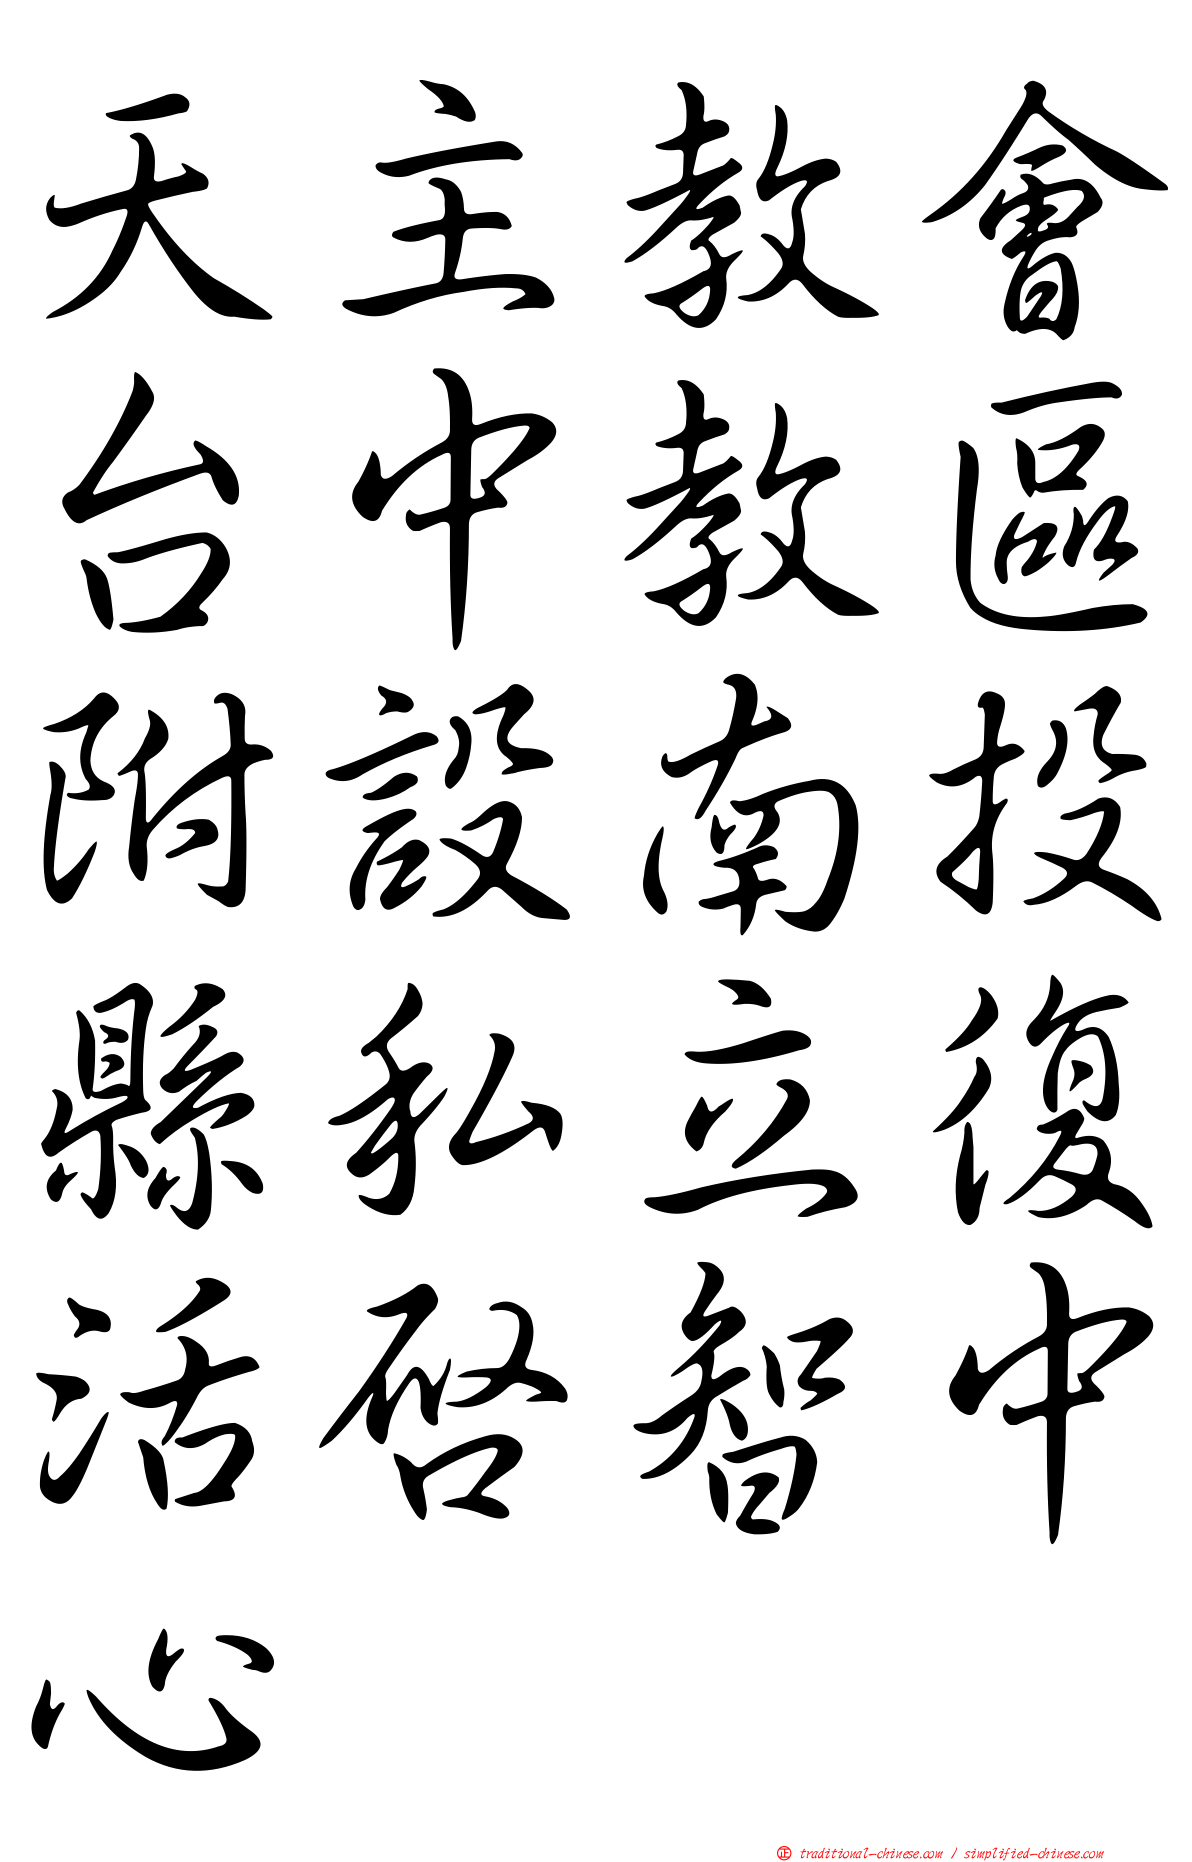 天主教會
台中教區
附設南投
縣私立復
活啓智中
心
㊣ traditional-chinese.com / simplified-chinese.com